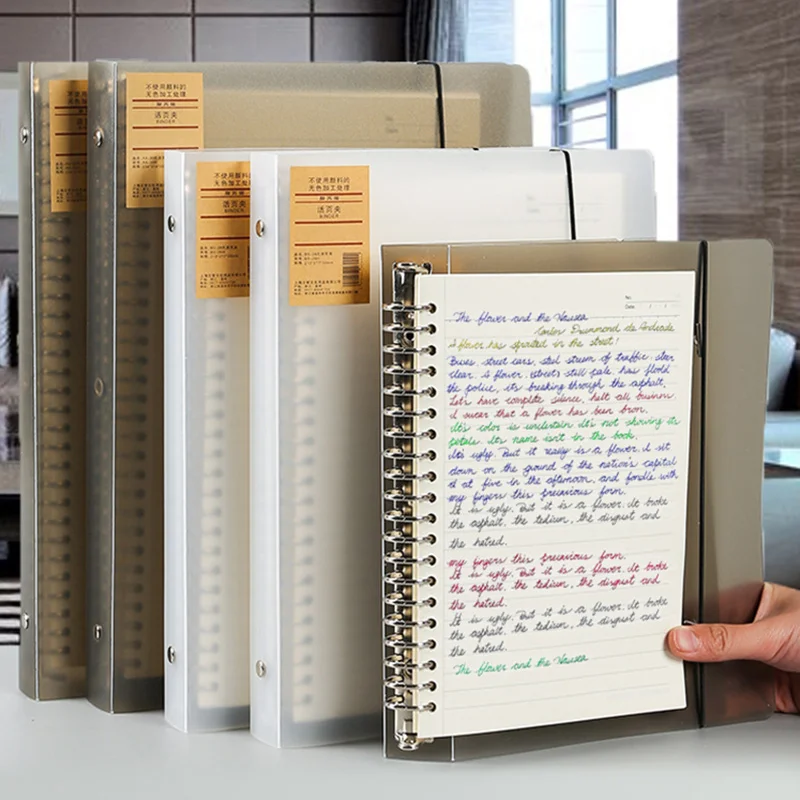 不使用颜料的
无色加工处理
活页夹
BINDER
不使用颜料的
无色加工处理
活页夹
BINDER
不使用颜料的
无色加工处理
活页夹
BINDER
No:
Date:
The flower and the Nausea
Carlos Drummond de Andrade
A flower has sprouted in the street!
Buses, street cars, steel stream of traffic: steer
clear! A flower, still pale, has floold
the police, it's breaking through the asphalt,
Let's have complete silence, halt all business,
I swear that a flower has been bron.
It's color is uncertain It's not showing its
petals. It's name isn't in the book.
It's ugly. But it really is a flower. I sit
down on the ground of the nation's capital
at five in the afternoon, and fondle with
my fingers this precarious form.
It is ugly. But it is a flower. It broke
the asphalt, the tedium, the disgust and
the hatred.
my fingers this precarious form.
It is ugly. But it is a flower. It broke
the asphalt, the tedium, the disgust and
the hatred.
It is ugly. But it is a flower. It broke
the asphalt, the tedium, the disgust and
the hatred.
The flower and the Nausea